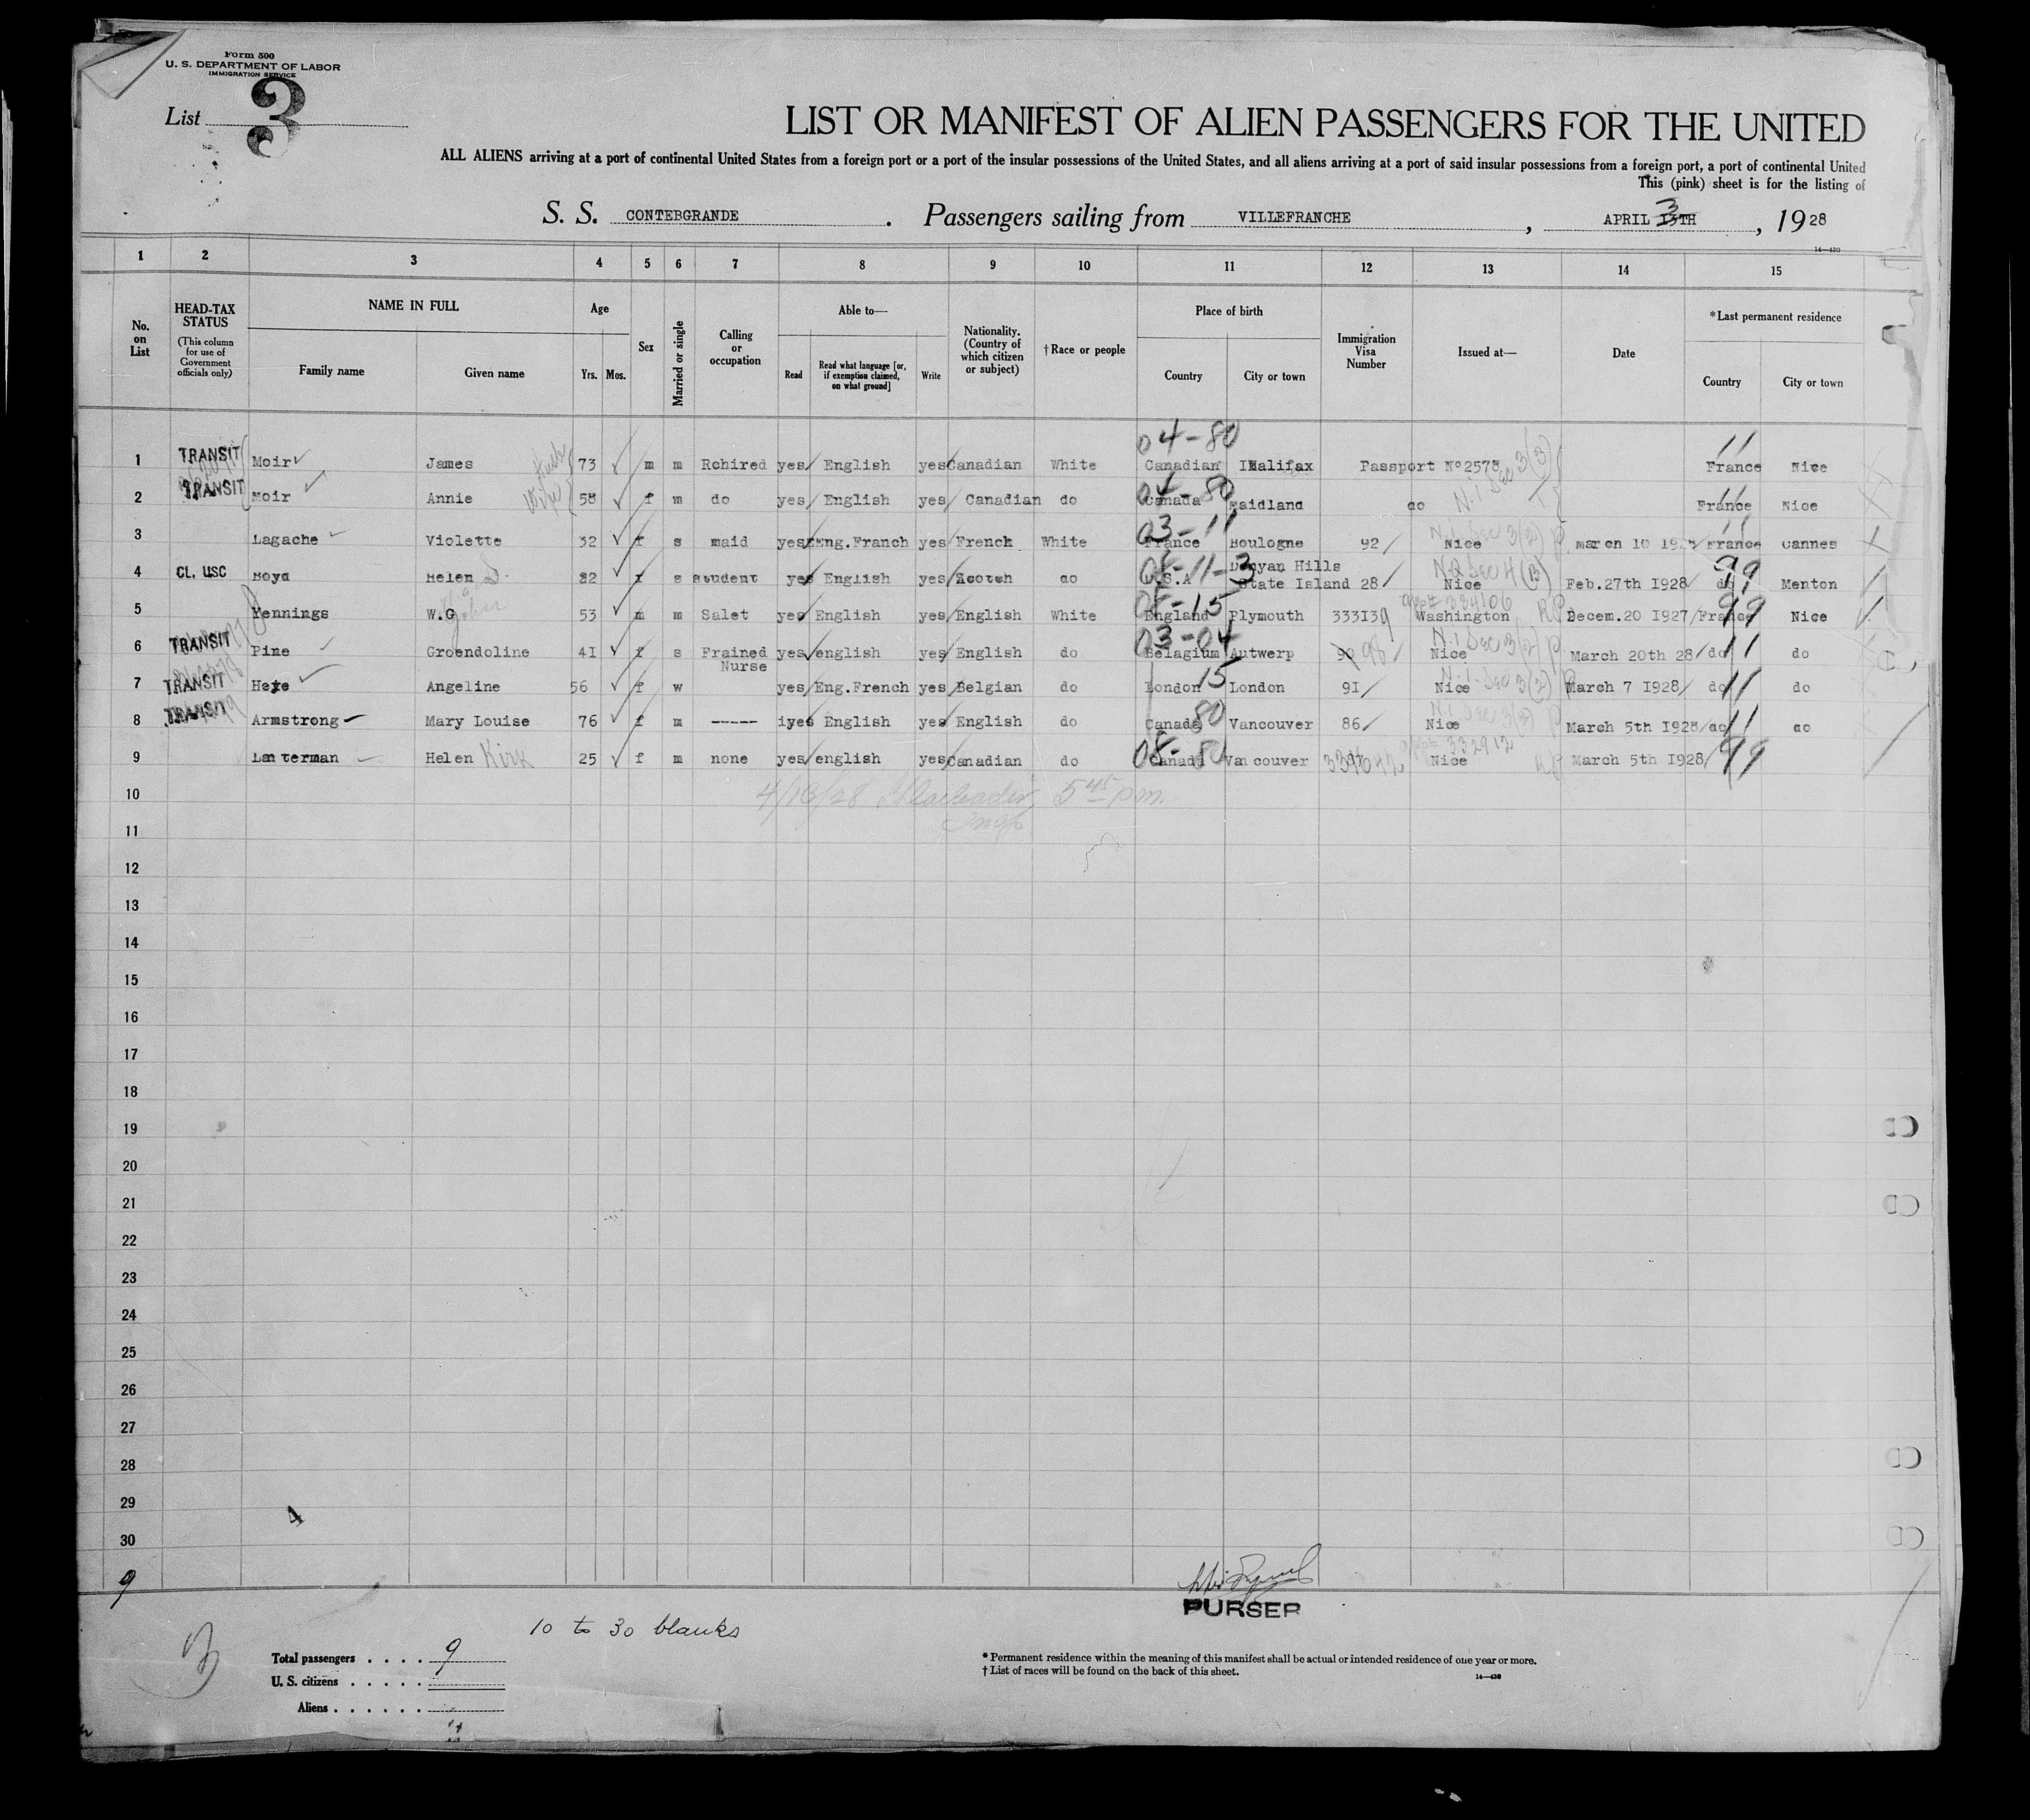 Form 500
U. S. DEPARTMENT OF LABOR
IMMIGRATION SERVICE
List 3
LIST OR MANIFEST OF ALIEN PASSENGERS FOR THE UNITED
ALL ALIENS arriving at a port of continental United States from a foreign port or a port of the insular possessions of the United States, and all aliens arriving at a port of said insular possessions from a foreign port, a port of continental United
This (pink) sheet is for the listing of
S. S. CONTEBGRANDE . Passengers sailing from VILLEFRANCHE , APRIL 3 13TH , 1928
14—430
1 2 3 4 5 6 7 8 9 10 11 12 13 14 15
No. on List
HEAD-TAX STATUS (This column for use of Government officials only)
NAME IN FULL Family name Given name
Age Yrs. Mos.
Sex
Married or single
Calling or occupation
Able to— Read Read what language [or, if exemption claimed, on what ground] Write
Nationality. (Country of which citizen or subject)
† Race or people
Place of birth Country City or town
Immigration Visa Number
Issued at—
Date
*Last permanent residence Country City or town
04-80 11
1 TRANSIT Moir James 73 m m Rchired yes English yes Canadian White Canadian Halifax Passport Nº 2578 3(3) France Nice
04-80 11
2 TRANSIT Moir Annie Wife 58 f m do yes English yes Canadian do Canada Maidland do France Nice
03-11 11
3 Lagache Violette 32 f s maid yes Eng.Franch yes French White France Boulogne 92 Nice N.I. Sec 3(2) P. March 10 192 France Cannes
3 99
4 CL. USC Boyd Helen S. 22 f s student yes English yes Scotch do U.S.A State Island 28 Nice Sec 4(B) Feb.27th 1928 do Menton
08-15 334106 99
5 Hennings W.G John 53 m m Salet yes English yes English White England Plymouth 333139 Washington RP Decem.20 1927 France Nice
03-04
6 TRANSIT Pine Groendoline 41 f s Frained Nurse yes english yes English do Belagium Antwerp 90 98 Nice N.I. Sec 3(2) P March 20th 28 do 11 do
15
7 TRANSIT Heye Angeline 56 f w yes Eng.French yes Belgian do London London 91 Nice N.I. Sec 3(2) P March 7 1928 do 11 do
80
8 TRANSIT Armstrong Mary Louise 76 f m ----- iyes English yes English do Canada Vancouver 86 Nice N.I. Sec 3(2) P March 5th 1928 do 11 do
08-80 332912
9 Lanterman Helen Kirk 25 f m none yes english yes Canadian do Canada Van couver Nice RP March 5th 1928 99
10 4/13/28 5 45 pm.
11 Insp
12
13
14
15
16
17
18
19
20
21
22
23
24
25
26
27
28
29 4
30
9
PURSER
10 to 30 blanks
Total passengers . . . . 9
U. S. citizens . . . . .
Aliens . . . . . .
* Permanent residence within the meaning of this manifest shall be actual or intended residence of one year or more.
† List of races will be found on the back of this sheet.
14—430